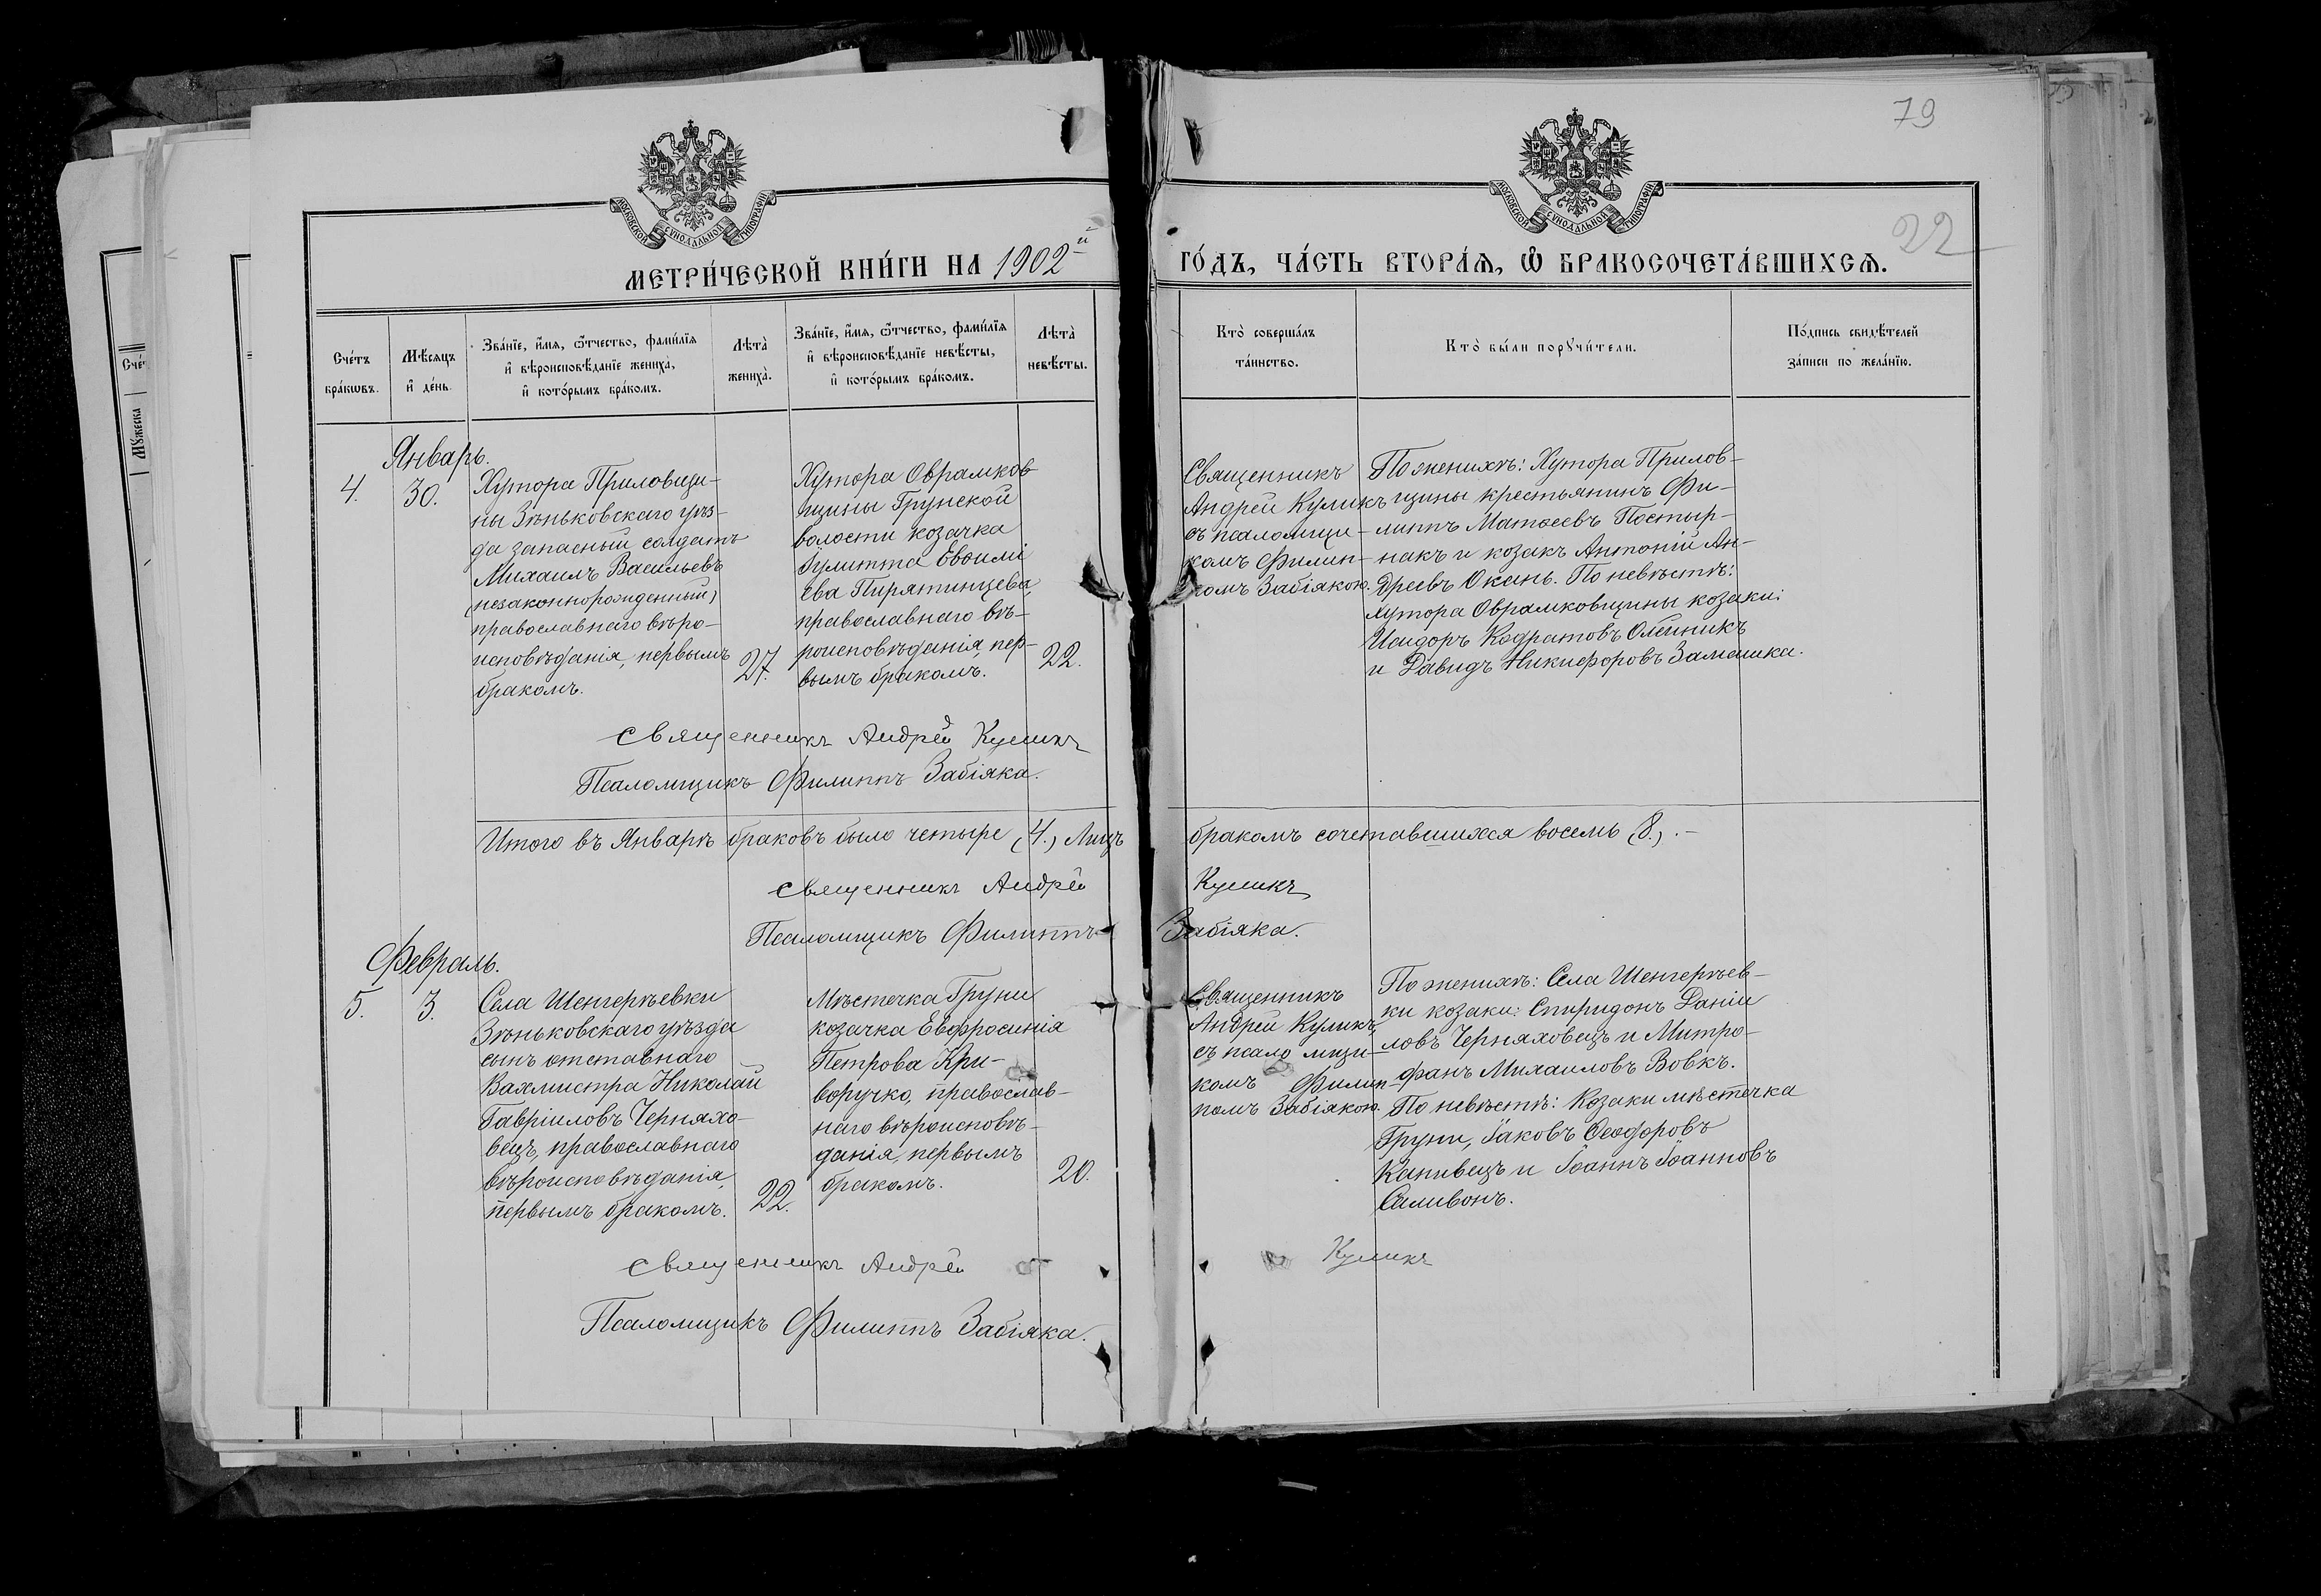 79
22
МОСКОВСКОЙ СѴНОДАЛЬНОЙ ТИПОГРАФІИ
МОСКОВСКОЙ СѴНОДАЛЬНОЙ ТИПОГРАФІИ
МЕТРИ́ЧЕСКОЙ КНИ́ГИ НА 1902й
ГО́ДЪ, ЧА́СТЬ ВТОРА́Ѧ, Ѡ БРАКОСОЧЕТА́ВШИХСѦ.
Сче́тъ бра́кѡвъ.
Мѣ́сѧцъ и҆ де́нь.
Зва́нїе, и҆́мѧ, ѻ҆́тчество, фами́лїѧ и҆ вѣроисповѣ́данїе жениха̀, и҆ кото́рымъ бра́комъ.
Лѣта̀ жениха̀.
Зва́нїе, и҆́мѧ, ѻ҆́тчество, фами́лїѧ и҆ вѣроисповѣ́данїе невѣ́сты, и҆ кото́рымъ бра́комъ.
Лѣта̀ невѣ́сты.
Кто̀ соверша́лъ та́инство.
Кто̀ бы́ли порꙋчи́тели.
По́дпись свидѣ́телей за́писи по жела́нїю.
Сче́
Мꙋ́жеска
Январь.
4.
30.
Хутора Приловщи-
ны Зѣньковскаго уѣз-
да запасный солдатъ
Михаилъ Васильевъ
(незаконнорожденный)
православнаго вѣро-
исповѣданія, первымъ
бракомъ.
27.
Хутора Оврамков-
щины Грунской
волости козачка
Іулитта Евѳимі
ева Пирятинцева,
православнаго вѣ-
роисповѣданія, пер-
вымъ бракомъ.
22.
Священникъ
Андрей Куликъ
съ псаломщи-
комъ Филип-
помъ Забіякою.
По женихѣ: Хутора Прилов-
щины крестьянинъ Фи-
липпъ Матѳеевъ Постыр-
накъ и козакъ Антоній Ан-
дреевъ Окань. По невѣстѣ:
хутора Оврамковщины козаки:
Исидоръ Кодратовъ Олейникъ
и Давидъ Никифоровъ Замашка.
Священникъ Андрей Куликъ
Псаломщикъ Филиппъ Забіяка.
Итого въ Январѣ браковъ было четыре (4.) Лицъ бракомъ сочетавшихся восемь (8.).-
Священникъ Андрей Куликъ
Псаломщикъ Филиппъ Забіяка.
Февраль.
5.
3.
Села Шенгерѣевки
Зѣньковскаго уѣзда
сынъ отставнаго
Вахмистра Николай
Гавріиловъ Черняхо-
вецъ, православнаго
вѣроисповѣданія,
первымъ бракомъ.
22.
Мѣстечка Груни
козачка Евфросинія
Петрова Кри-
воручко, православ-
наго вѣроисповѣ-
данія, первымъ
бракомъ.
20.
Священникъ
Андрей Куликъ
съ псаломщи-
комъ Филип-
помъ Забіякою.
По женихѣ: Села Шенгерѣев-
ки козаки: Спиридонъ Даніи
ловъ Черняховецъ и Митро-
фанъ Михаиловъ Вовкъ.
По невѣстѣ: Козаки мѣстечка
Груни, Іаковъ Ѳеодоровъ
Капивецъ и Іоаннъ Іоанновъ
Саливонъ.
Священникъ Андрей Куликъ
Псаломщикъ Филиппъ Забіяка.